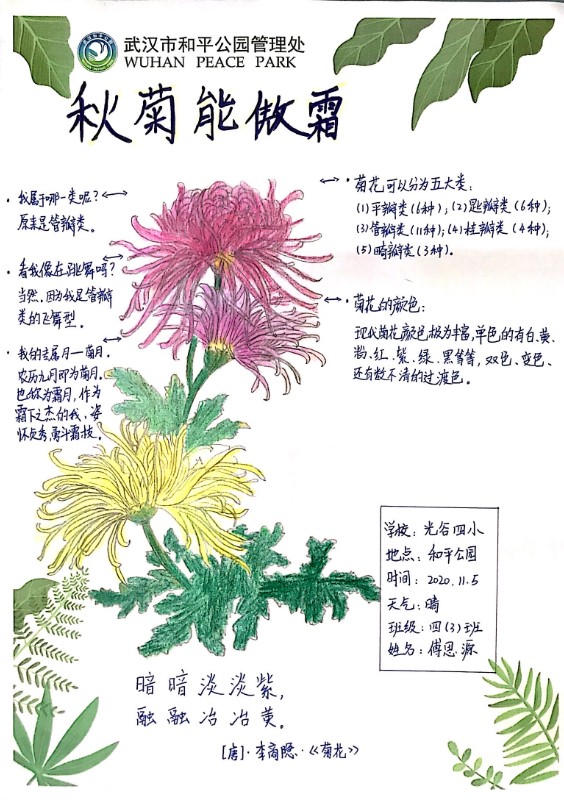 武汉市和平公园管理处
WUHAN PEACE PARK
秋菊能傲霜
·我属于哪一类呢?
原来是管瓣类。
·看我像在跳舞吗?
当然,因为我是管瓣
类的飞舞型。
·我的专属月—菊月。
农历九月即为菊月,
也称为霜月,作为
霜下之杰的我,姿
怀贞秀,勇斗霜枝。
·菊花可以分为五大类:
(1)平瓣类(6种);(2)匙瓣类(6种);
(3)管瓣类(11种);(4)桂瓣类(4种);
(5)畸瓣类(3种)。
·菊花的颜色:
现代菊花颜色极为丰富,单色的有白、黄、
粉、红、紫、绿、黑等等,双色、变色、
还有数不清的过渡色。
学校:光谷四小
地点:和平公园
时间:2020.11.5
天气:晴
班级:四(3)班
姓名:傅思源
暗暗淡淡紫,
融融冶冶黄。
[唐]·李商隐·《菊花》